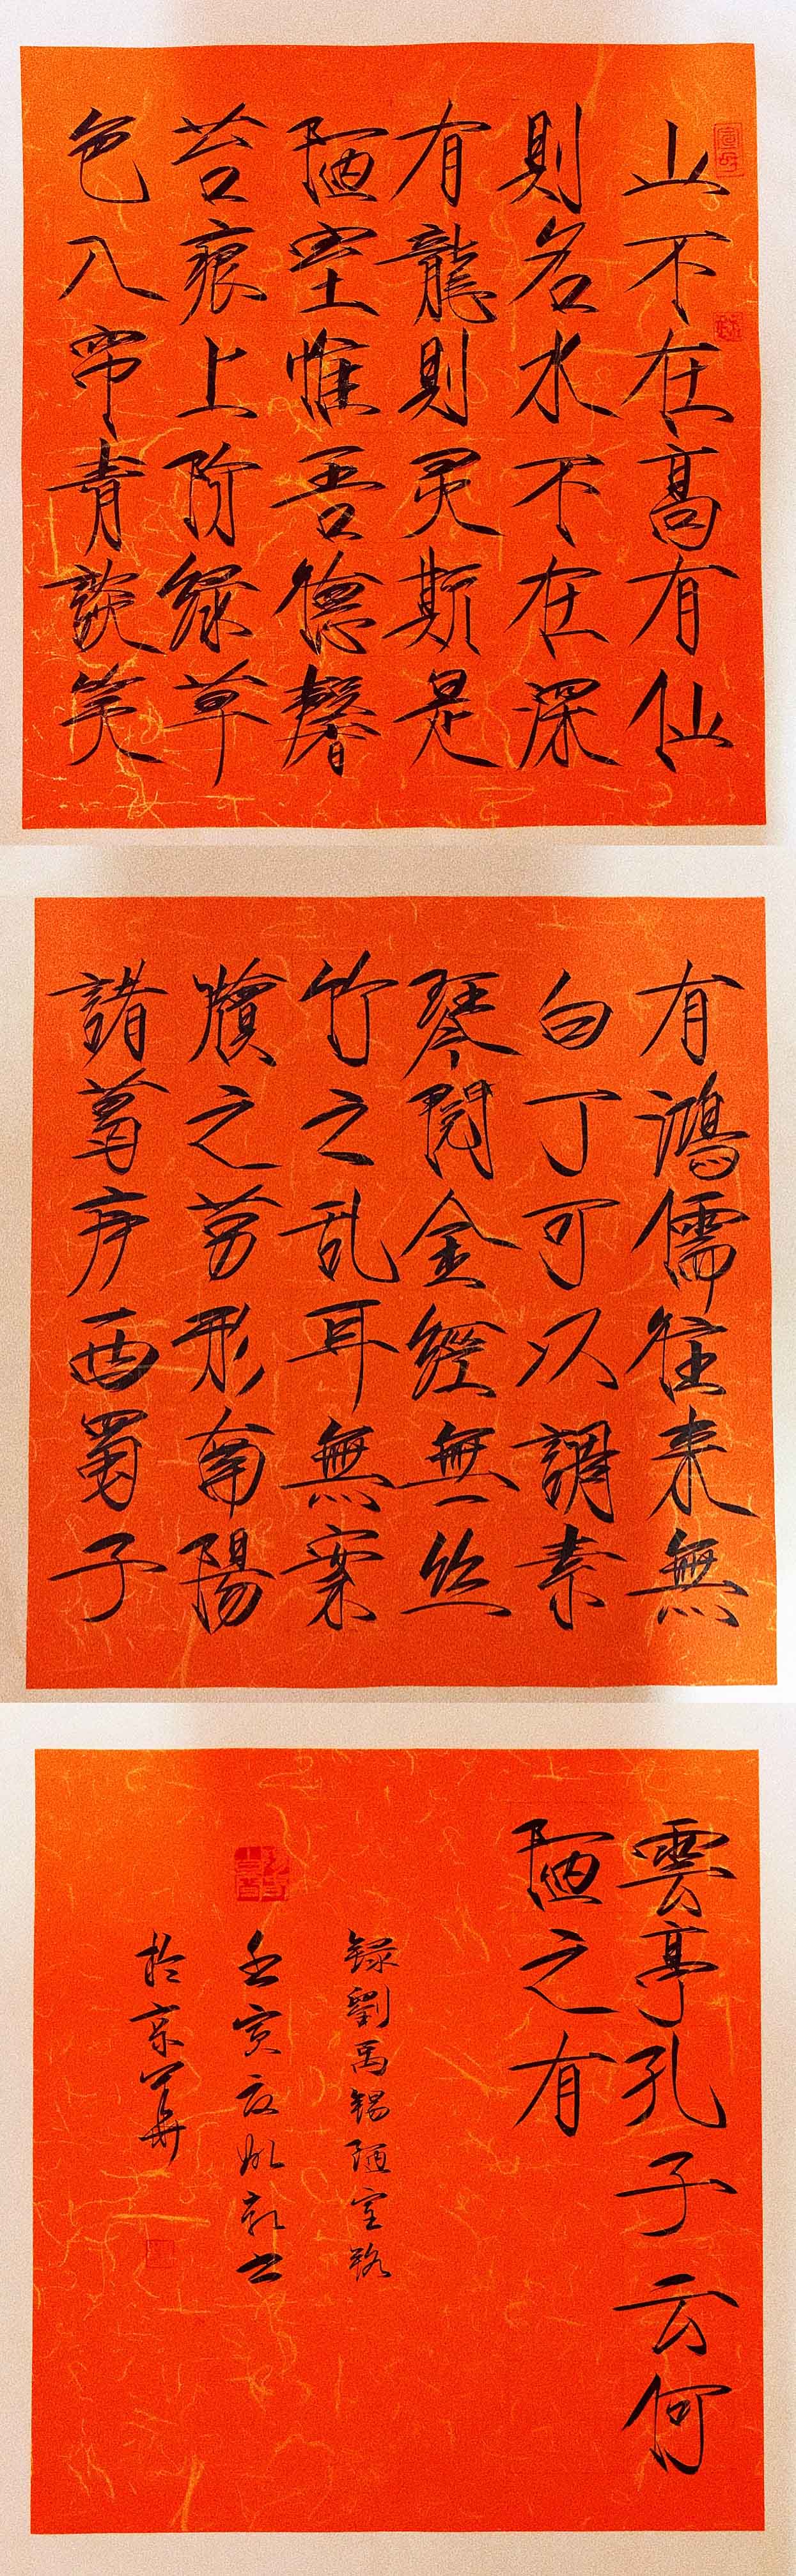 山不在高有仙
則名水不在深
有龍則灵斯是
陋室惟吾德馨
苔痕上阶緑草
色入帘青談笑
有鴻儒往来無
白丁可以調素
琴閱金經無丝
竹之乱耳無案
牘之劳形南陽
諸葛庐西蜀子
雲亭孔子云何
陋之有
録劉禹錫陋室銘
壬寅
於京華